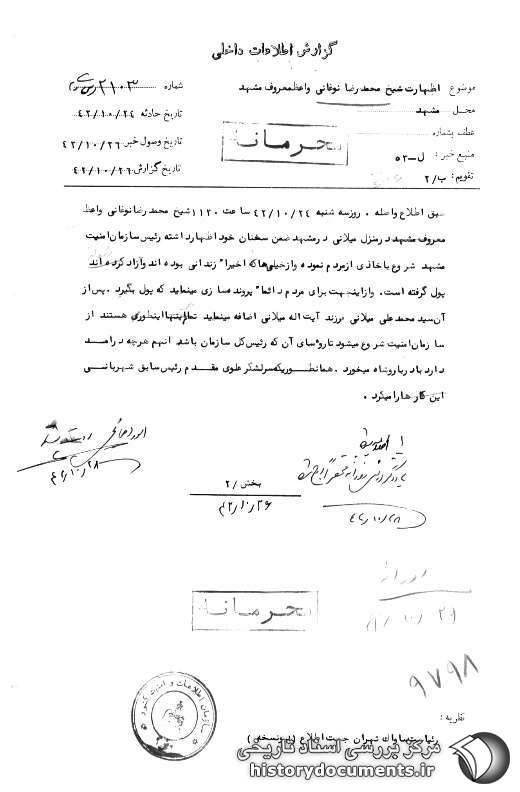 گزارش اطلاعات داخلی
موضوع : اظهارت شیخ محمدرضا نوغانی واعظ معروف مشهد
شماره ۲۱۰۳
محل مشهد
تاریخ حادثه ۴۲/۱۰/۲۴
عطف بشماره
تاریخ وصول خبر ۴۲/۱۰/۲۶
منبع خبر : ل-۵۳
تاریخ گزارش ۴۲/۱۰/۲۶
تقویم : ب/۲
محرمانه
طبق اطلاع واصله . روز سه شنبه ۴۲/۱۰/۲۴ ساعت ۱۱۲۰ شیخ محمدرضا نوغانی واعظ
معروف مشهد در منزل میلانی در مشهد ضمن سخنان خود اظهارداشته رئیس سازمان امنیت
مشهد شروع باخاذی ازمردم نموده وازخیلی‌ها که اخیرا" زندانی بوده اند وآزاد کرده اند
پول گرفته است. وازاینجهت برای مردم دائما" پرونده سازی مینماید که پول بگیرد . پس از
آن سید محمدعلی میلانی فرزند آیت اله میلانی اضافه مینماید تمام اینها اینطوری هستند از
سازمان امنیت شروع میشود تا روسای آن که رئیس کل سازمان باشد آنهم هرچه درآمد
دارد با دربار و شاه میخورد . همانطوریکه سرلشکر علوی مقدم رئیس سابق شهربانی
این کارها را میکرد .
۴۲/۱۰/۲۸
۴۲/۱۰/۲۸
بخش /۲
۴۲/۱۰/۲۶
محرمانه
۲۹/۱۰/
۹۷۹۸
سازمان اطلاعات و امنیت کشور
نظریه :
ریاست ساواک تهران جهت اطلاع (در دو نسخه)
مرکز بررسی اسناد تاریخی
historydocuments.ir